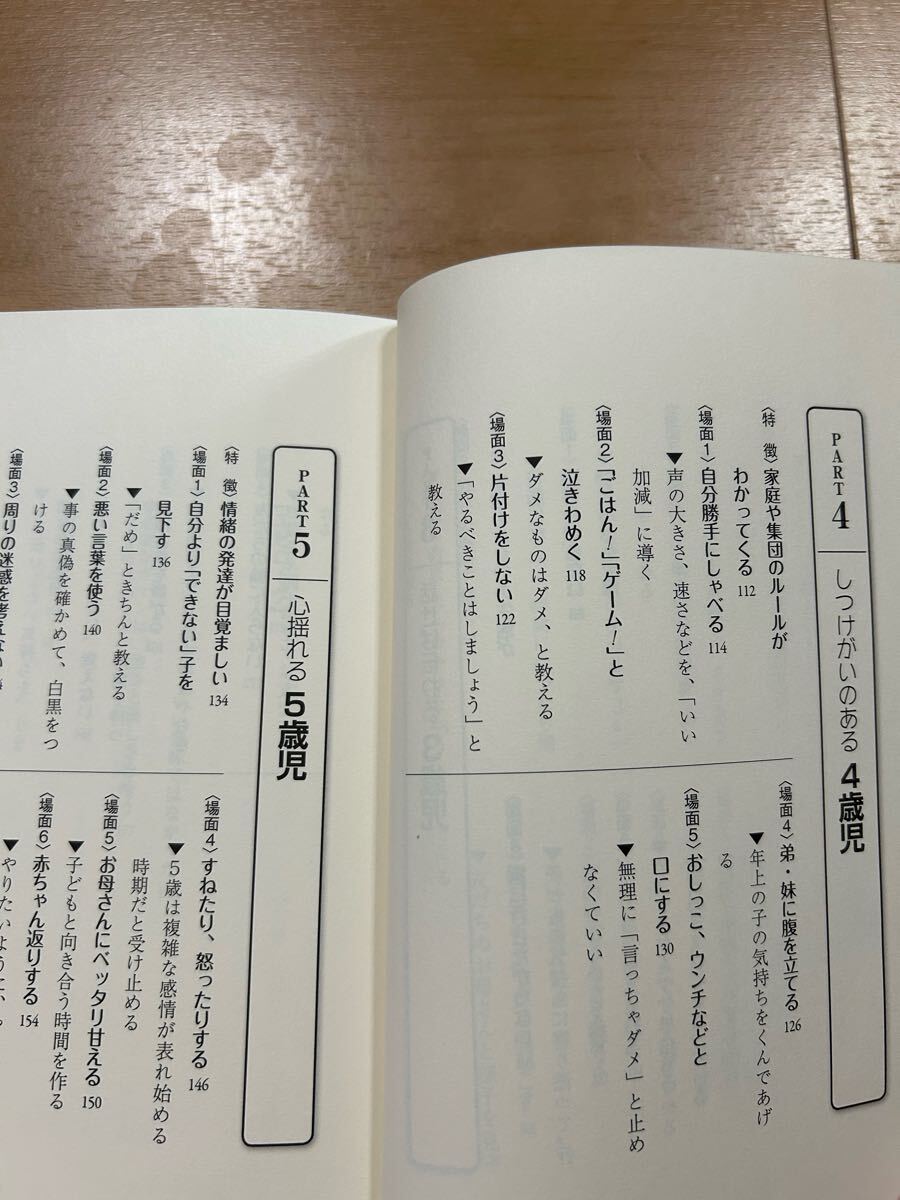 PART 4 しつけがいのある 4歳児
〈特 徴〉家庭や集団のルールが
わかってくる 112
〈場面1〉自分勝手にしゃべる 114
▼声の大きさ、速さなどを、「いい
加減」に導く
〈場面2〉「ごはん!」「ゲーム!」と
泣きわめく 118
▼ダメなものはダメ、と教える
〈場面3〉片付けをしない 122
▼「やるべきことはしましょう」と
教える
〈場面4〉弟・妹に腹を立てる 126
▼年上の子の気持ちをくんであげ
る
〈場面5〉おしっこ、ウンチなどと
口にする 130
▼無理に「言っちゃダメ」と止め
なくていい
PART 5 心揺れる 5歳児
〈特 徴〉情緒の発達が目覚ましい 134
〈場面1〉自分より「できない」子を
見下す 136
▼「だめ」ときちんと教える
〈場面2〉悪い言葉を使う 140
▼事の真偽を確かめて、白黒をつ
ける
〈場面3〉周りの迷惑を考えない
〈場面4〉すねたり、怒ったりする 146
▼5歳は複雑な感情が表れ始める
時期だと受け止める
〈場面5〉お母さんにベッタリ甘える 150
▼子どもと向き合う時間を作る
〈場面6〉赤ちゃん返りする 154
▼やりたいように、